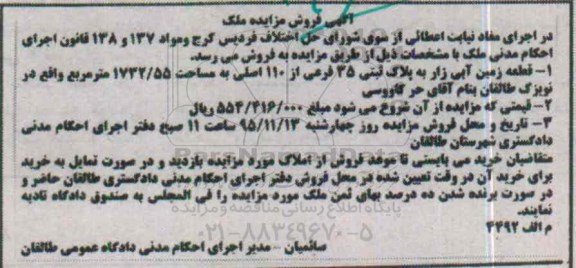 آگهی فروش مزایده ملک
در اجرای مفاد نیابت اعطائی از سوی شورای حل اختلاف فردیس کرج ومواد ۱۳۷ و ۱۳۸ قانون اجرای
احکام مدنی ملک با مشخصات ذیل از طریق مزایده به فروش می رسد.
۱- قطعه زمین آبی زار به پلاک ثبتی ۳۵ فرعی از ۱۱۰ اصلی به مساحت ۱۷۳۲/۵۵ مترمربع واقع در
نویزک طالقان بنام آقای حر کاووسی
۲- قیمتی که مزایده از آن شروع می شود مبلغ ۵۵۴/۴۱۶/۰۰۰ ریال
۳- تاریخ و محل فروش مزایده روز چهارشنبه ۹۵/۱۱/۱۳ ساعت ۱۱ صبح دفتر اجرای احکام مدنی
دادگستری شهرستان طالقان
متقاضیان خرید می بایستی تا موعد فروش از املاک مورد مزایده بازدید و در صورت تمایل به خرید
برای خرید آن در وقت تعیین شده در محل فروش دفتر اجرای احکام مدنی دادگستری طالقان حاضر و
در صورت برنده شدن ده درصد بهای ثمن ملک مورد مزایده را فی المجلس به صندوق دادگاه تادیه
نمایند.
پایگاه اطلاع رسانی مناقصه و مزایده
م الف ۴۴۹۲
۰۲۱-۸۸۳۴۹۶۷۰-۵
صائمیان - مدیر اجرای احکام مدنی دادگاه عمومی طالقان